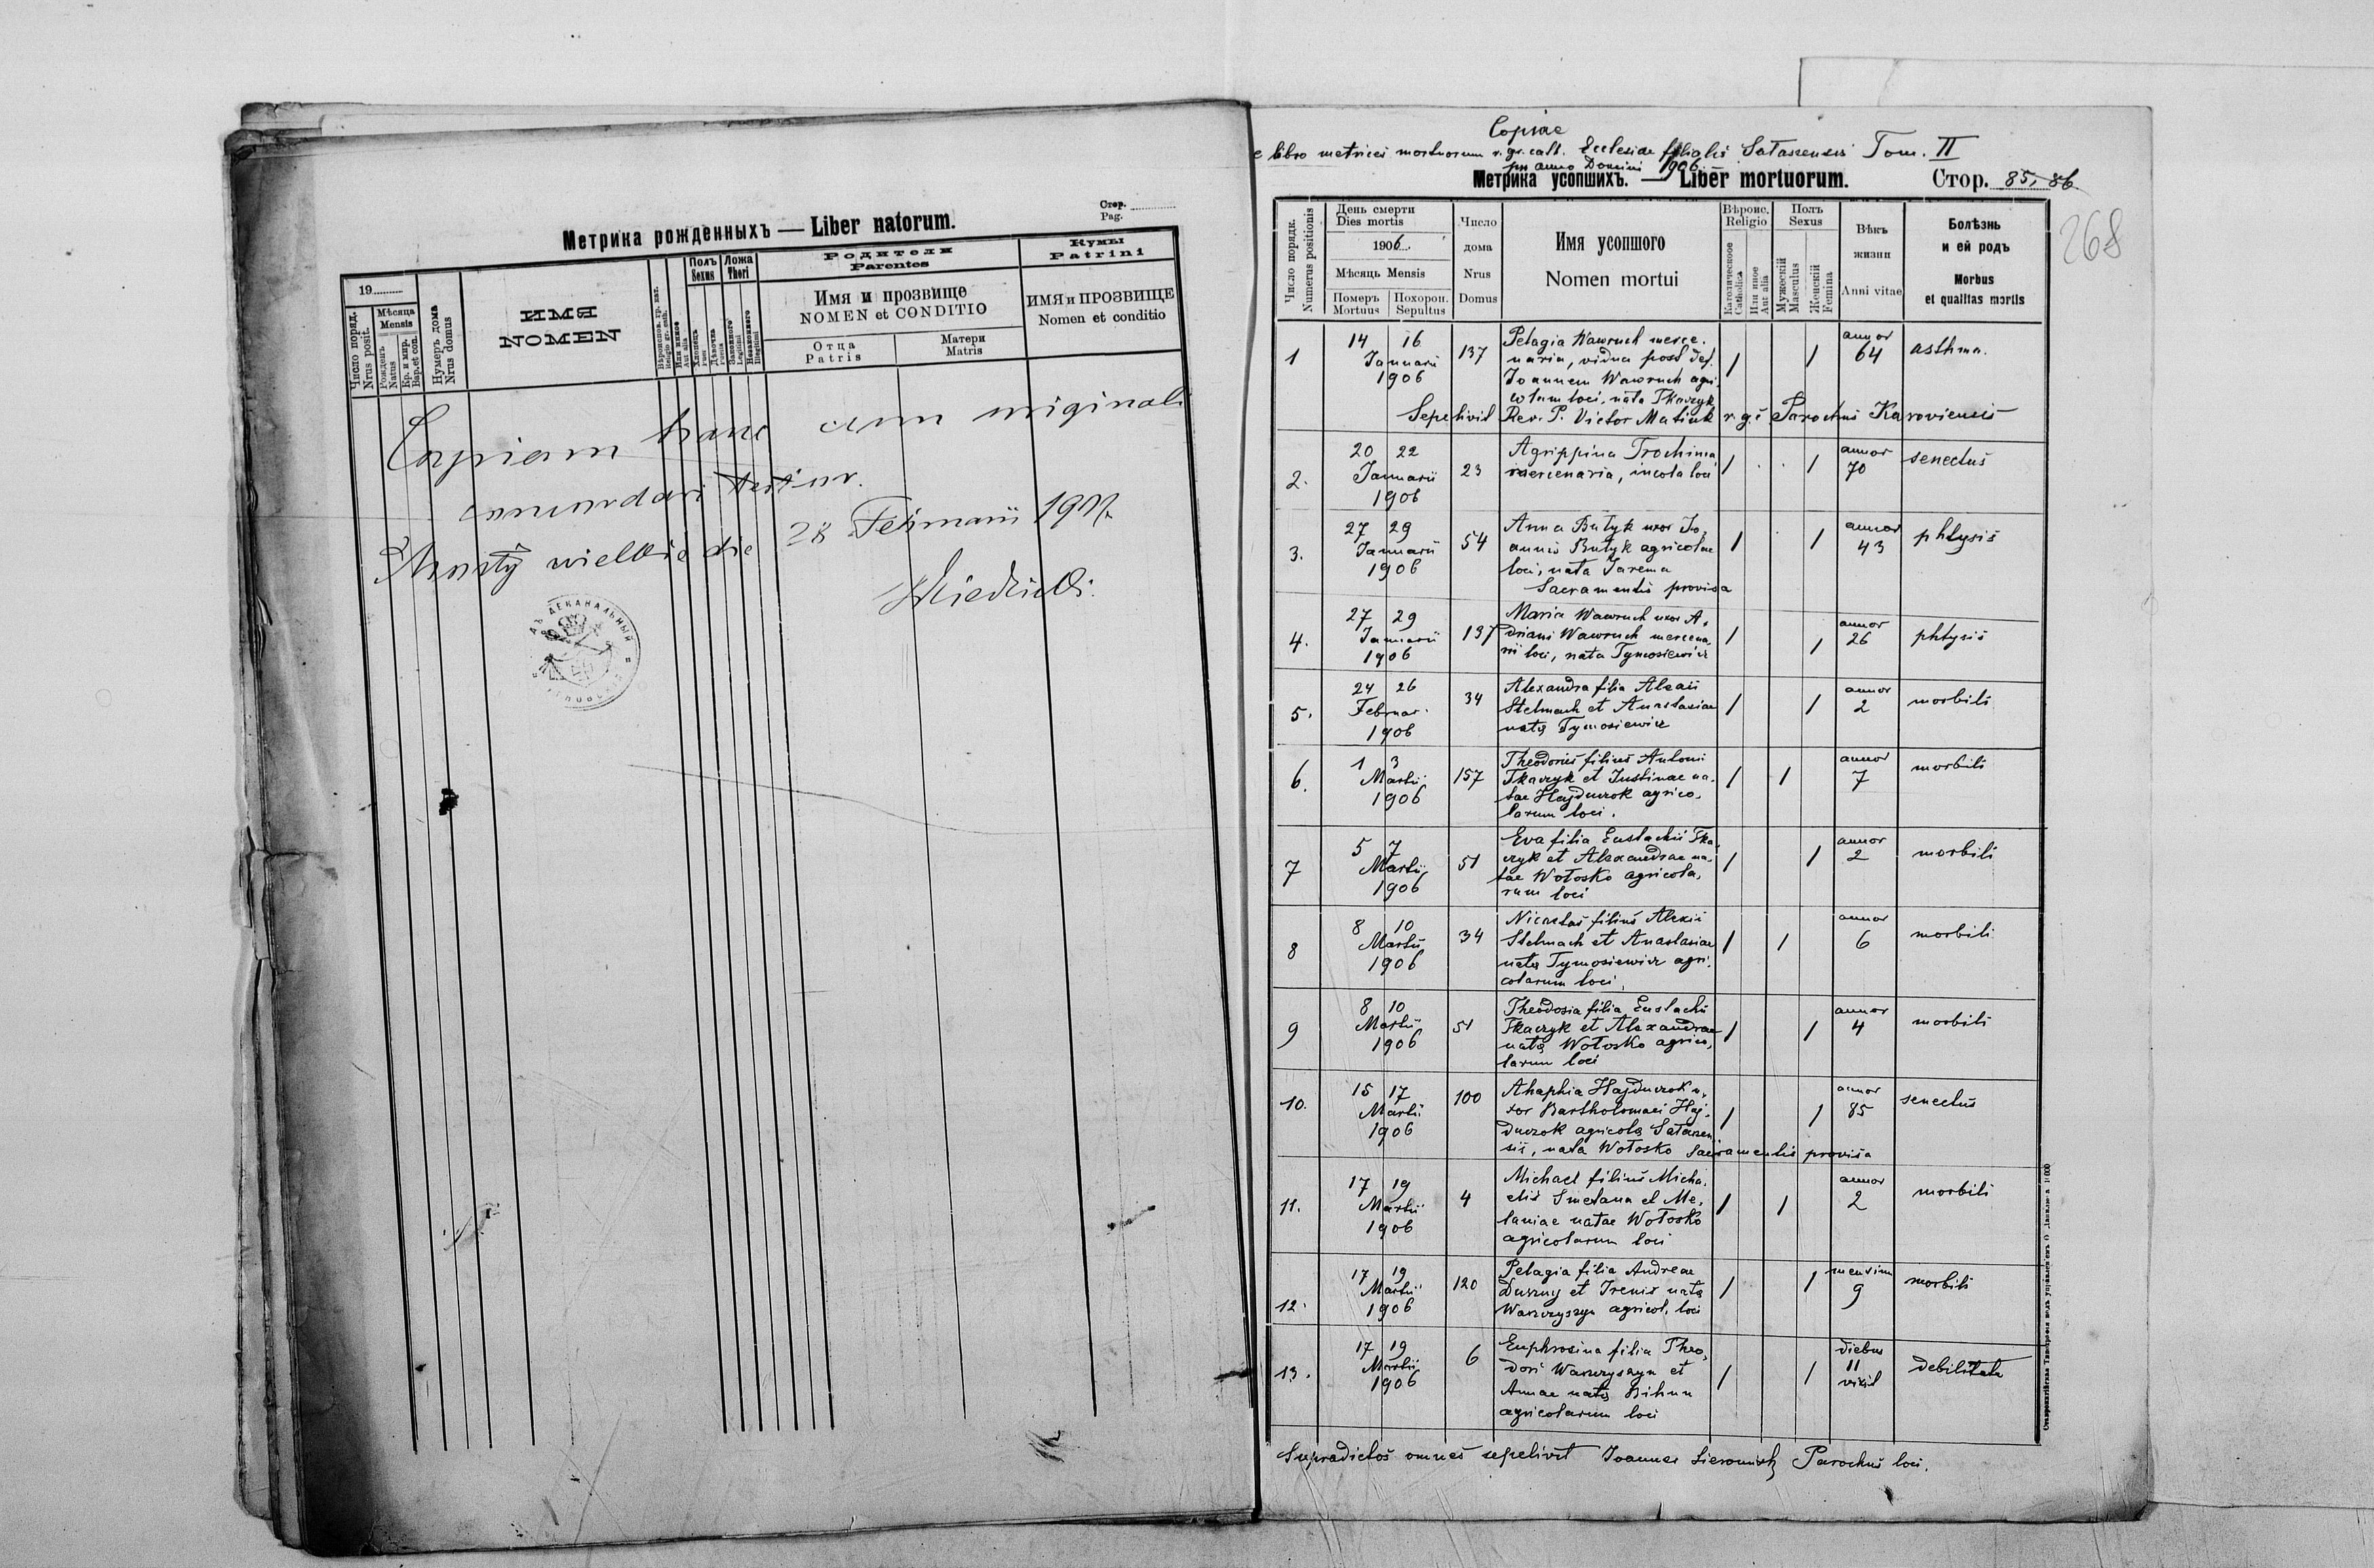 Стор.
Pag.
Метрика рожденныхъ — Liber natorum.
19
Число поряд.
Nrus posit.
Мѣсяца
Mensis
Рожденъ
Natus
Кр. и мир.
Bap. et con.
Нумеръ дома
Nrus domus
ИМЯ
NOMEN
Или иное
Aut alia
Полъ
Sexus
Хлопецъ
Puer
Дѣвочка
Puella
Ложа
Thori
Законного
Legitimi
Незаконного
Illegitimi
Родители
Parentes
Имя и прозвище
NOMEN et CONDITIO
Отца
Patris
Матери
Matris
Кумы
Patrini
ИМЯ и ПРОЗВИЩЕ
Nomen et conditio
Copiam hanc cum originali
concordari testor.
Mosty wielkie die 28 Februarii 1907.
Copiae
e libro metrices mortuorum r. gr. cath. Ecclesiae filialis Tom. II
pro anno Domini 1906.
Метрика усопшихъ. — Liber mortuorum. Стор. 85, 86
268
Число порядк.
Numerus positionis
День смерти
Dies mortis
1906
Мѣсяць Mensis
Померъ
Mortuus
Похорон.
Sepultus
Число
дома
Nrus
Domus
Имя усопшого
Nomen mortui
Вѣроис.
Religio
Католическое
Catholica
Или иное
Aut alia
Полъ
Sexus
Мужескій
Masculus
Женскій
Femina
Вѣкъ
жизни
Anni vitae
Болѣзнь
и ей родъ
Morbus
et qualitas mortis
1 14 16 Januarii 1906 137 Pelagia Wawruch merce-
naria, vidua post def.
Joannem Wawruch agri-
colam loci, nata Tkaczyk
1 1 annor 64 asthma.
Sepelivit Rev. P. Victor Matiuk r.g.c Parochus Karoviensis
2. 20 22 Januarii 1906 23 Agrippina Trochima
mercenaria, incola loci
1 1 annor 70 senectus
3. 27 29 Januarii 1906 54 Anna Butyk uxor Jo-
annis Butyk agricolae
loci, nata Jarema
Sacramentis provisa
1 1 annor 43 phtysis
4. 27 29 Januarii 1906 137 Maria Wawruch uxor A-
driani Wawruch mercena-
rii loci, nata Tymosiewicz
1 1 annor 26 phtysis
5. 24 26 Februar. 1906 34 Alexandra filia Alexii
Stelmach et Anastasiae
natą Tymosiewicz
1 1 annor 2 morbili
6. 1 3 Martii 1906 157 Theodorus filius Antonii
Tkaczyk et Justinae na-
tae Hajduczok agrico-
larum loci.
1 1 annor 7 morbili
7 5 7 Martii 1906 51 Eva filia Eustachii Tka-
czyk et Alexandrae na-
tae Wołosko agricola-
rum loci
1 1 annor 2 morbili
8 8 10 Martii 1906 34 Nicolaus filius Alexii
Stelmach et Anastasiae
natą Tymosiewicz agri-
colarum loci.
1 1 annor 6 morbili
9 8 10 Martii 1906 51 Theodosia filia Eustachii
Tkaczyk et Alexandrae
natą Wołosko agrico-
larum loci
1 1 annor 4 morbili
10. 15 17 Martii 1906 100 Ahaphia Hajduczok u-
xor Bartholomaei Haj-
duczok agricolą
nata Wołosko Sacramentis provisa
1 1 annor 85 senectus
11. 17 19 Martii 1906 4 Michael filius Micha-
elis Smetana et Me-
laniae natae Wołosko
agricolarum loci
1 1 annor 2 morbili
12. 17 19 Martii 1906 120 Pelagia filia Andreae
et Irenis natą
Warczyszyn agricol. loci
1 1 mensium 9 morbili
13. 17 19 Martii 1906 6 Euphrosina filia Theo-
dori Warczyszyn et
Annae natą Bihun
agricolarum loci
1 1 diebus 11 vixit debilitate
Supradictos omnes sepelivit Joannes Parochus loci.